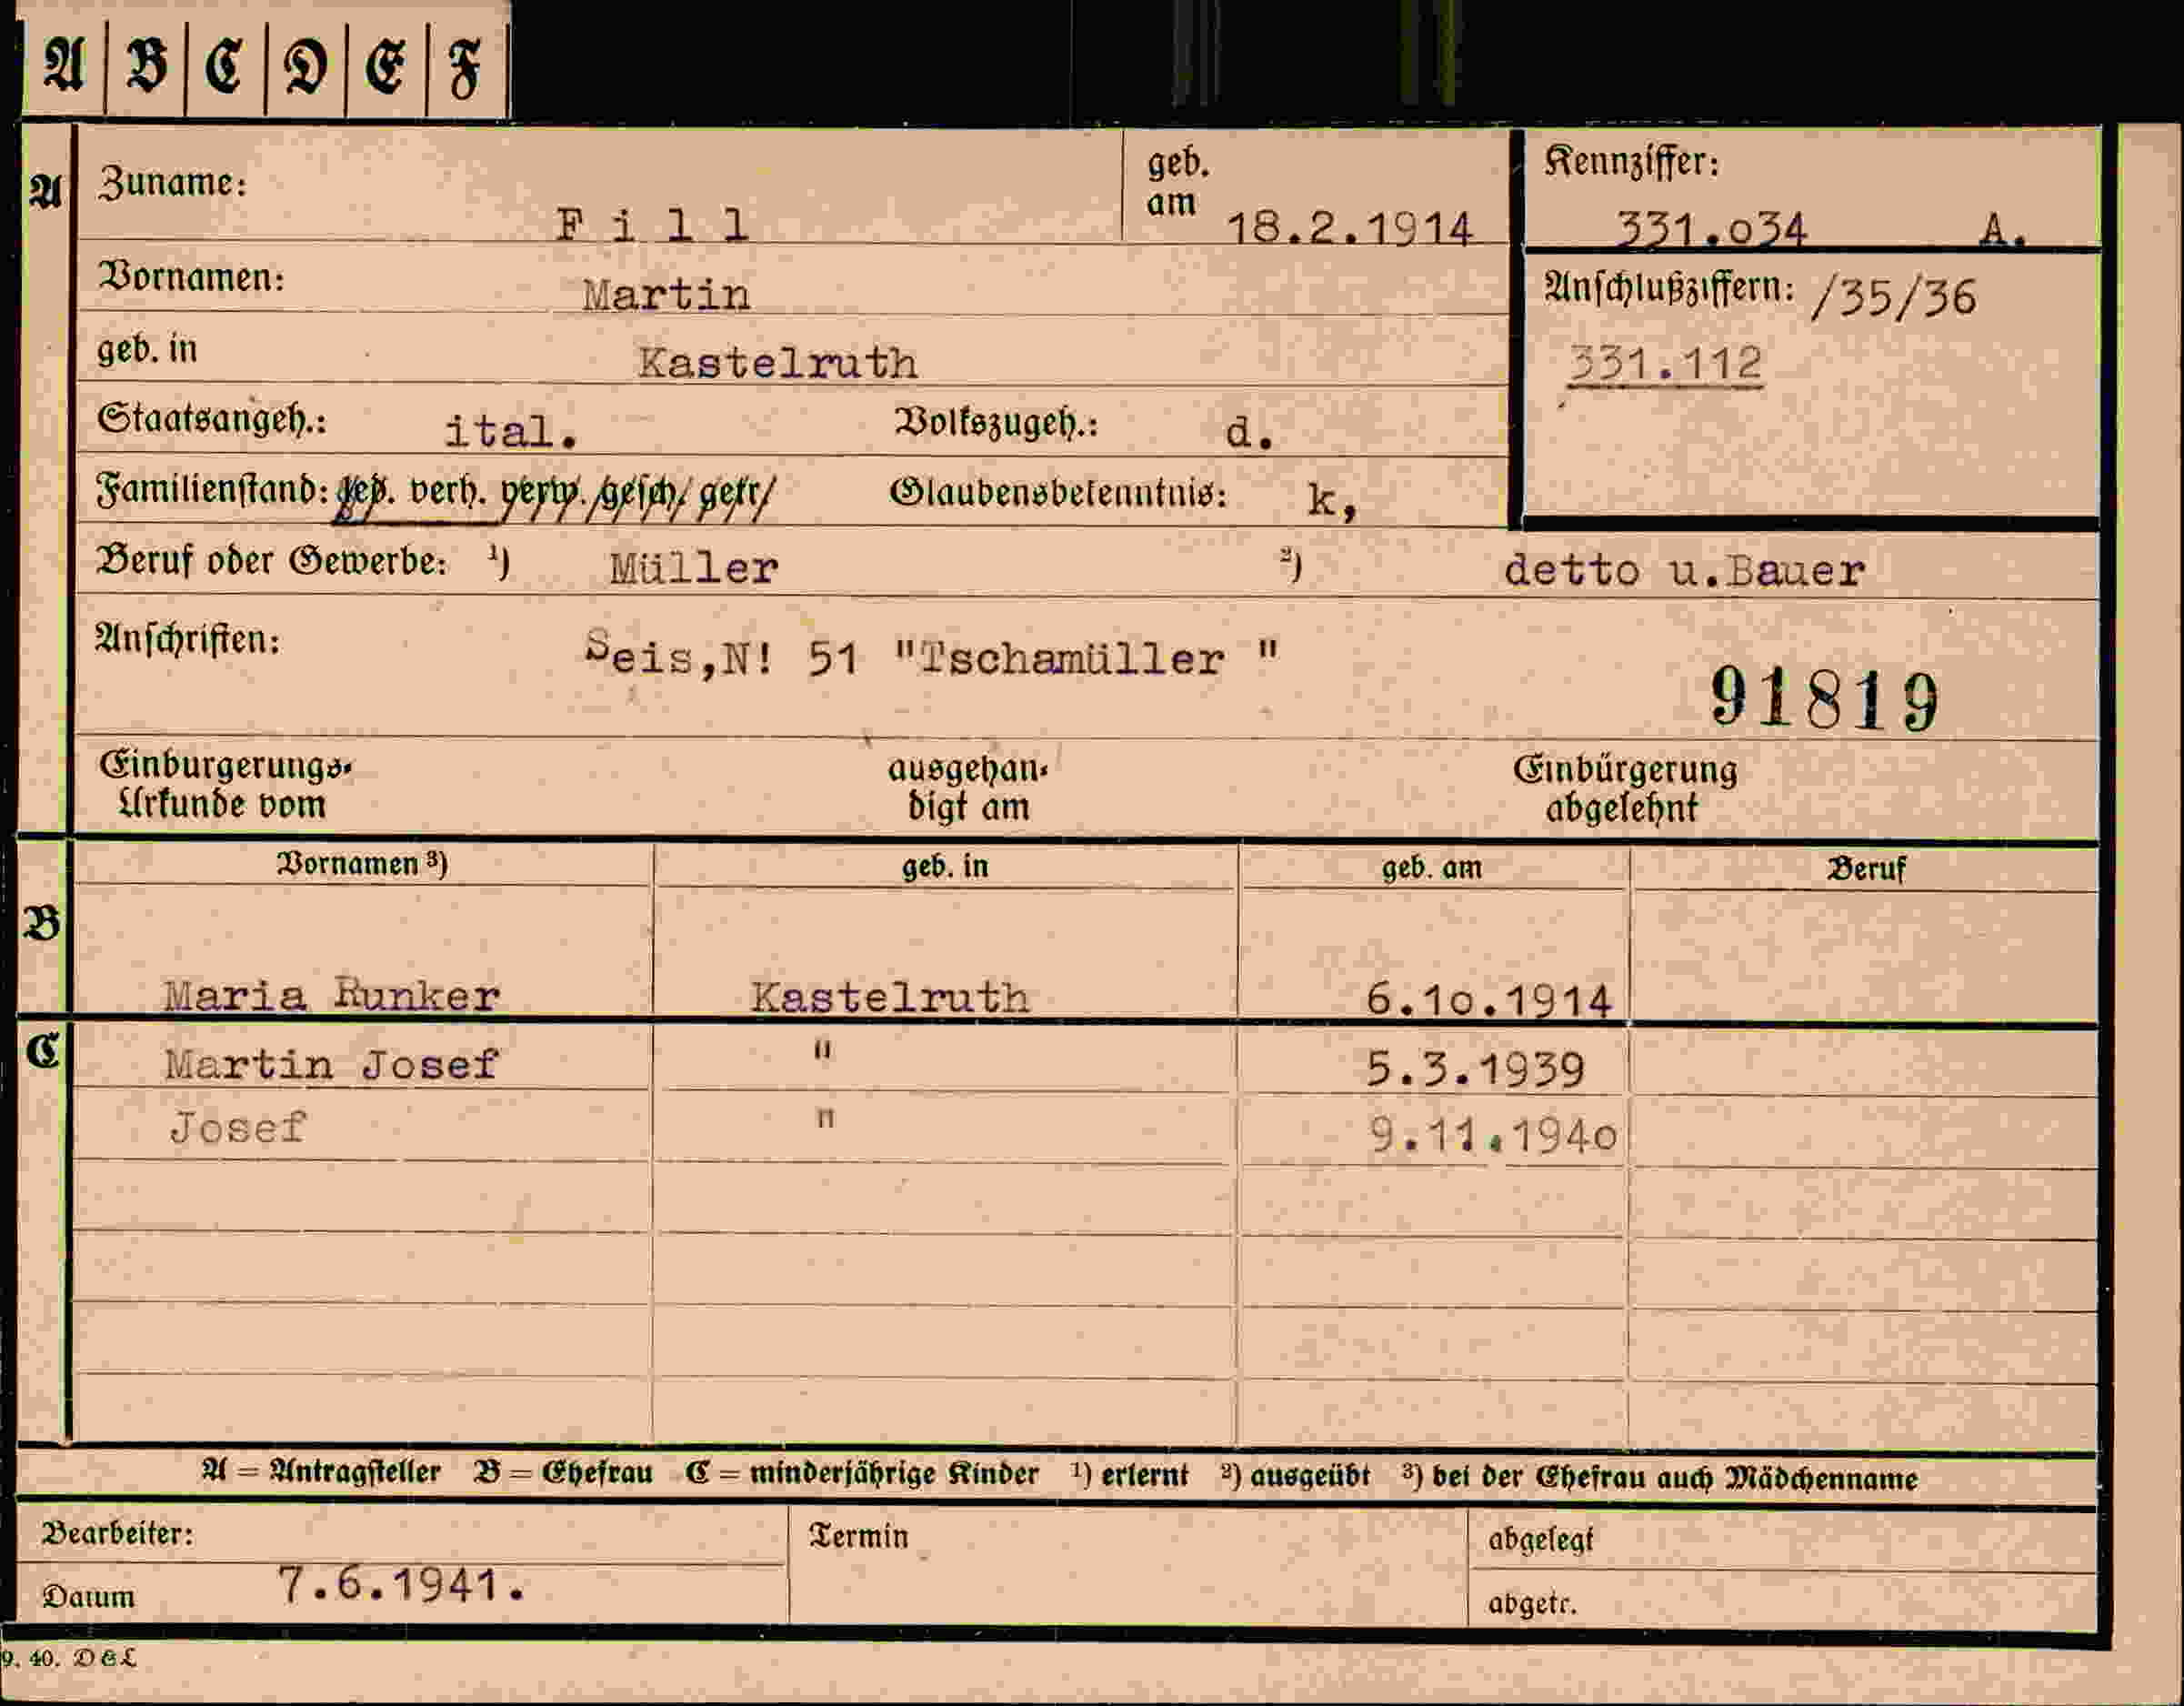 A B C D E F
A Zuname: Fill geb. am 18.2.1914 Kennziffer: 331.034 A.
Vornamen: Martin Anschlußziffern: /35/36
geb. in Kastelruth 331.112
Staatsangeh.: ital. Volkszugeh.: d.
Familienstand: led. verh. verw. gesch. getr. Glaubensbekenntnis: k,
Beruf oder Gewerbe: ¹) Müller ²) detto u.Bauer
Anschriften: Seis,N! 51 "Tschamüller "
91819
Einbürgerungs- ausgehän- Einbürgerung
Urkunde vom digt am abgelehnt
Vornamen ³) geb. in geb. am Beruf
B
Maria Runker Kastelruth 6.10.1914
C Martin Josef " 5.3.1939
Josef " 9.11.1940
A = Antragsteller B = Ehefrau C = minderjährige Kinder ¹) erlernt ²) ausgeübt ³) bei der Ehefrau auch Mädchenname
Bearbeiter: Termin abgelegt
Datum 7.6.1941. abgetr.
9. 40. D & L